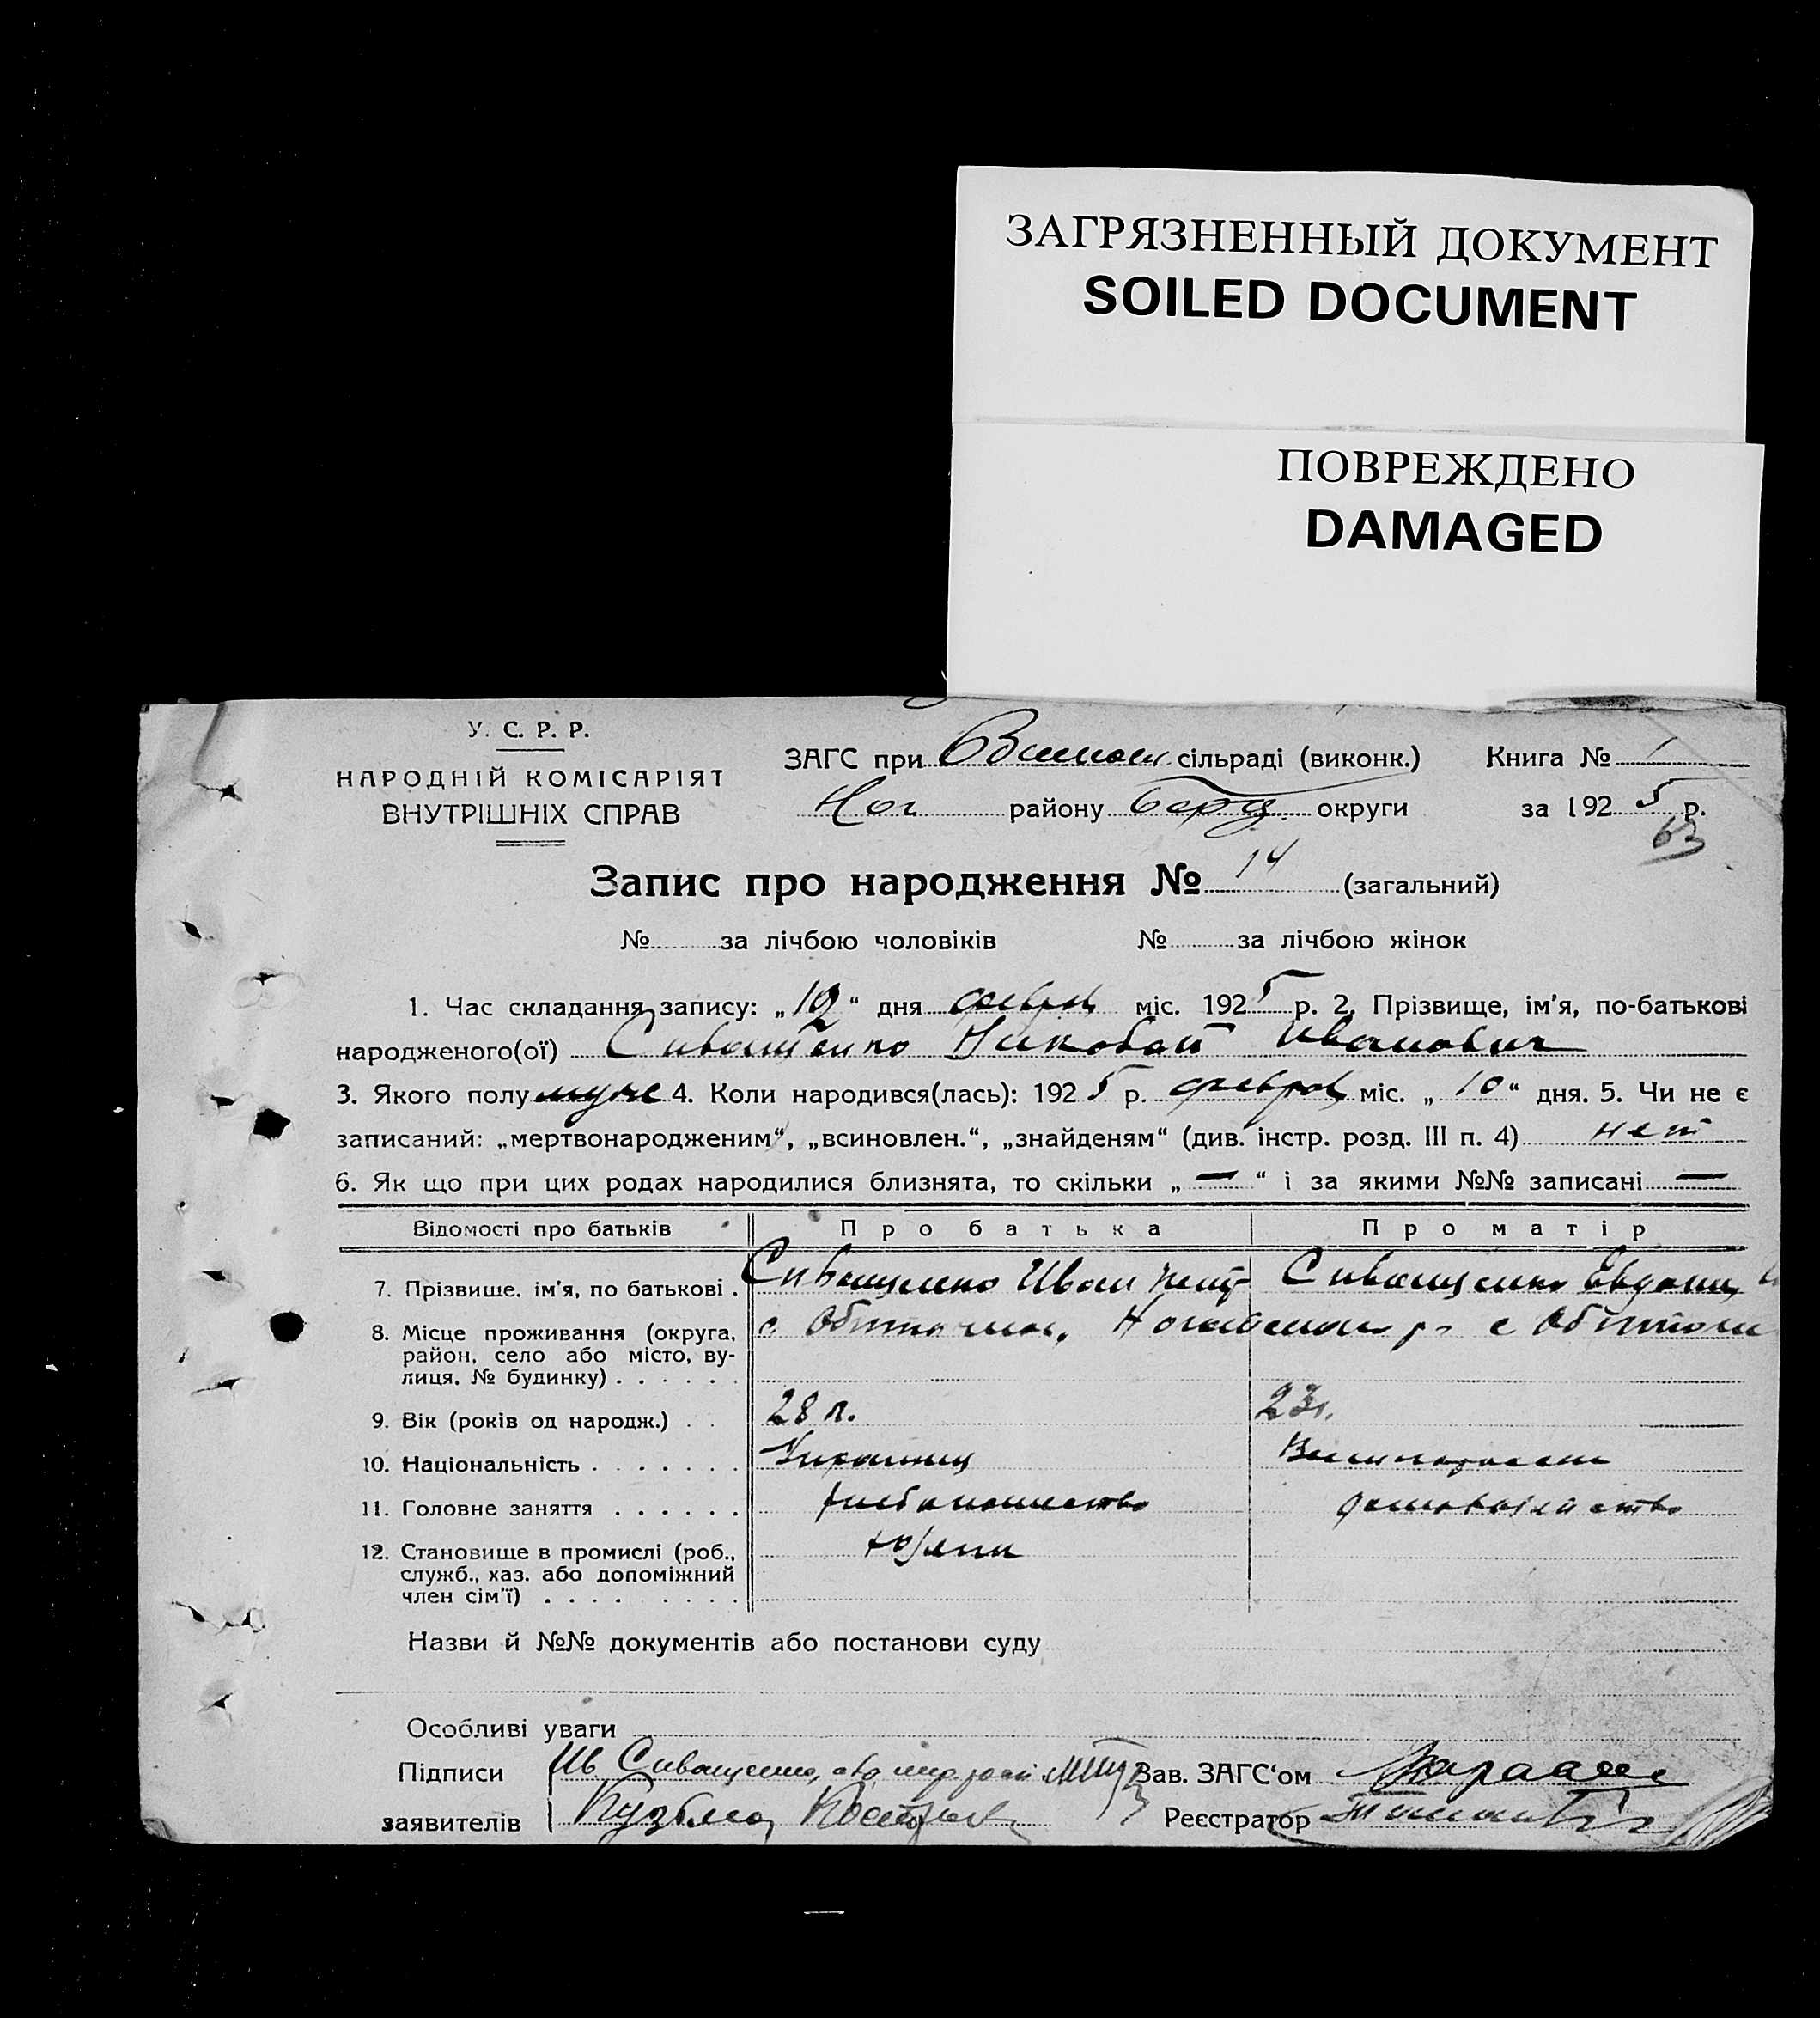 ЗАГРЯЗНЕННЫЙ ДОКУМЕНТ
SOILED DOCUMENT
ПОВРЕЖДЕНО
DAMAGED
У. С. Р. Р.
НАРОДНІЙ КОМІСАРІЯТ
ВНУТРІШНІХ СПРАВ
ЗАГС при сільраді (виконк.) Книга № 1
Ног району Берд. округи за 1925 р.
63
Запис про народження № 14 (загальний)
№ за лічбою чоловіків № за лічбою жінок
1. Час складання запису: „12“ дня феврал міс. 1925 р. 2. Прізвище, ім'я, по-батькові
народженого(ої) Сиващенко Николай Иванович
3. Якого полу муже 4. Коли народився(лась): 1925 р. феврал міс. „10“ дня. 5. Чи не є
записаний: „мертвонародженим“, „всиновлен.“, „знайденям“ (див. інстр. розд. III п. 4) нет
6. Як що при цих родах народилися близнята, то скільки „—“ і за якими №№ записані —
Відомості про батьків Про батька Про матір
7. Прізвище. ім'я, по батькові . Сиващенко Иван Сиващенко Евдоки
8. Місце проживання (округа, с Обиточная, р с Обиточн
район, село або місто, ву-
лиця. № будинку) . . . . . .
9. Вік (років од народж.) . . 28 л. 23 г.
10. Національність . . . . . . . Украинец
11. Головне заняття . . . . . . хлебопашество домохозяйство
12. Становище в промислі (роб., хозяин
служб., хаз. або допоміжний
член сім'ї) . . . . . . . .
Назви й №№ документів або постанови суду
Особливі уваги
Підписи Ив Сиващенко, Зав. ЗАГС‘ом
заявителів Кузьма Реєстратор